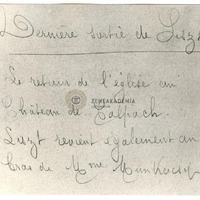 Dernière sortie de Liszt
Le retour de l'église au
Château de Colpach.
Liszt revient également au
bras de Mme Munkacsy
ZENEAKADÉMIA